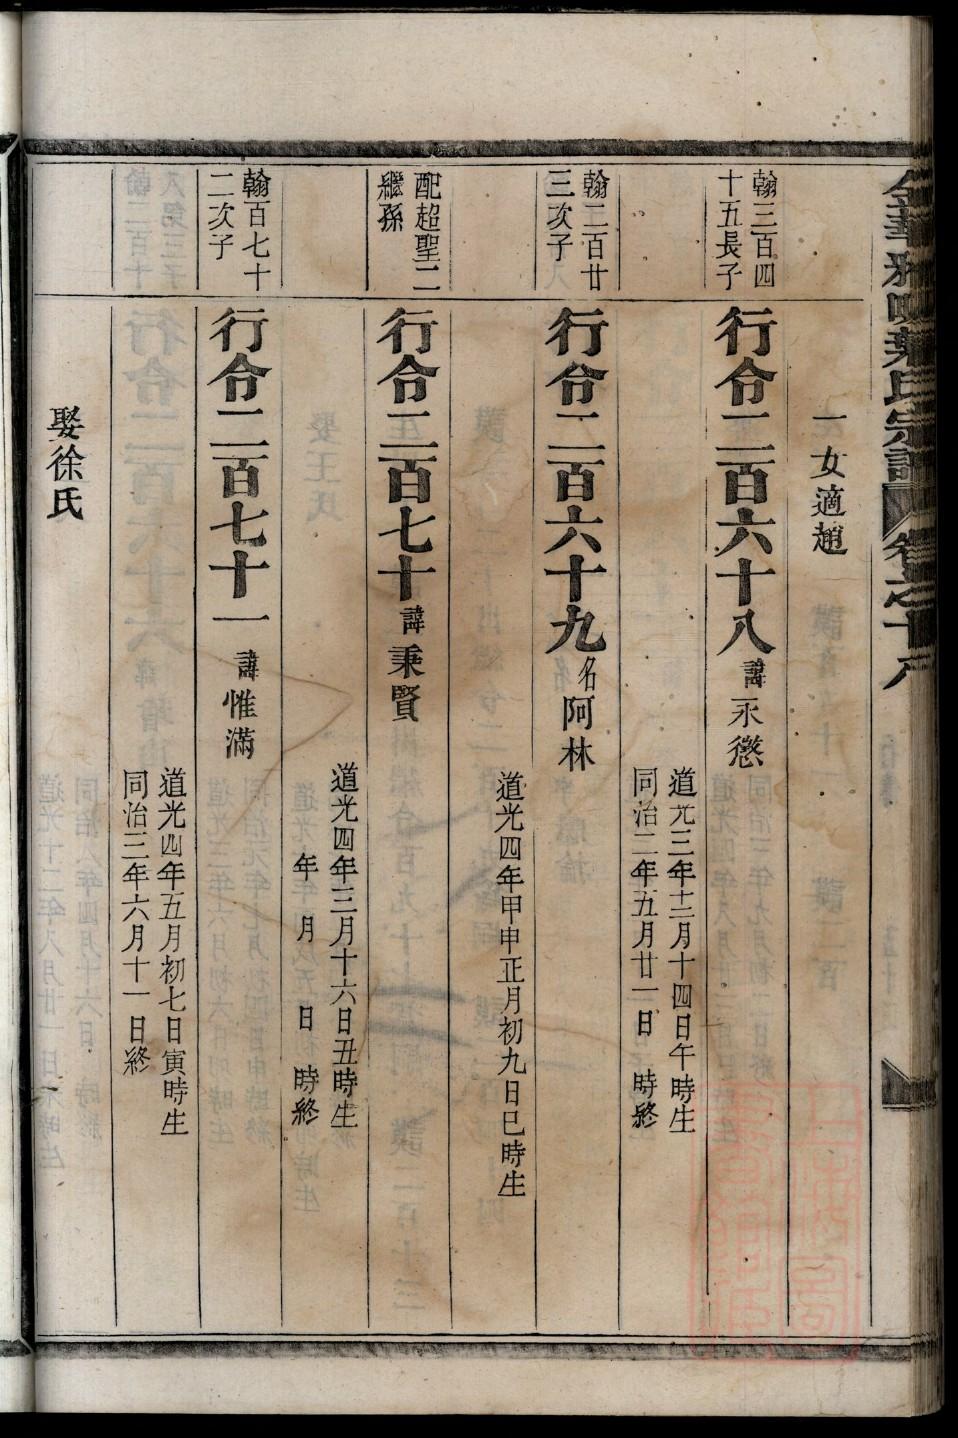 金華雅畈葉氏宗譜 卷之十八
一女適趙
翰三百四
十五長子
行令二百六十八 諱永懲
道光三年十二月十四日午時生
同治二年五月廿一日 時終
翰二百廿
三次子
行令二百六十九 名阿林
道光四年甲申正月初九日巳時生
配超聖二
繼孫
行令二百七十 諱秉賢
道光四年三月十六日丑時生
年 月 日 時終
翰百七十
二次子
行令二百七十一 諱惟滿
道光四年五月初七日寅時生
同治三年六月十一日終
娶徐氏